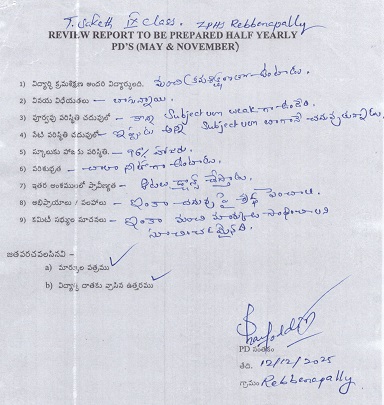 T. Saketh IX class. ZPHS Rebbenapally
REVIEW REPORT TO BE PREPARED HALF YEARLY
PD'S (MAY & NOVEMBER)
1) విద్యార్థి క్రమశిక్షణ అందరి విద్యార్థులది. మంచి క్రమశిక్షణగా ఉంటాడు.
2) వినయ విధేయతలు – బాగున్నాయి.
3) పూర్వపు పరిస్థితి చదువులో – కొన్ని Subject లలో weak గా ఉండెను
4) నేటి పరిస్థితి చదువులో – ఇప్పుడు అన్ని Subject లలో బాగానే చదువుతున్నాడు.
5) స్కూలుకు హాజరు పరిస్థితి. – 96% హాజరు.
6) పరిశుభ్రత – చాలా నీట్ గా ఉంటాడు.
7) ఇతర అంశములలో ప్రావీణ్యత – ఆటలు డ్యాన్స్ చేస్తాడు.
8) అభిప్రాయాలు / సలహాలు – ఇంకా చదువు పై శ్రద్ధ పెంచాలి.
9) కమిటీ సభ్యుల సూచనలు – ఇంకా మంచి మార్కులు సాధించాలని
సూచించడమైనది.
జతపరచవలసినవి –
a) మార్కుల పత్రము
b) విద్యార్థి దాతకు వ్రాసిన ఉత్తరము
PD సంతకం
తేది. 12/12/2025
గ్రామం Rebbenapally.